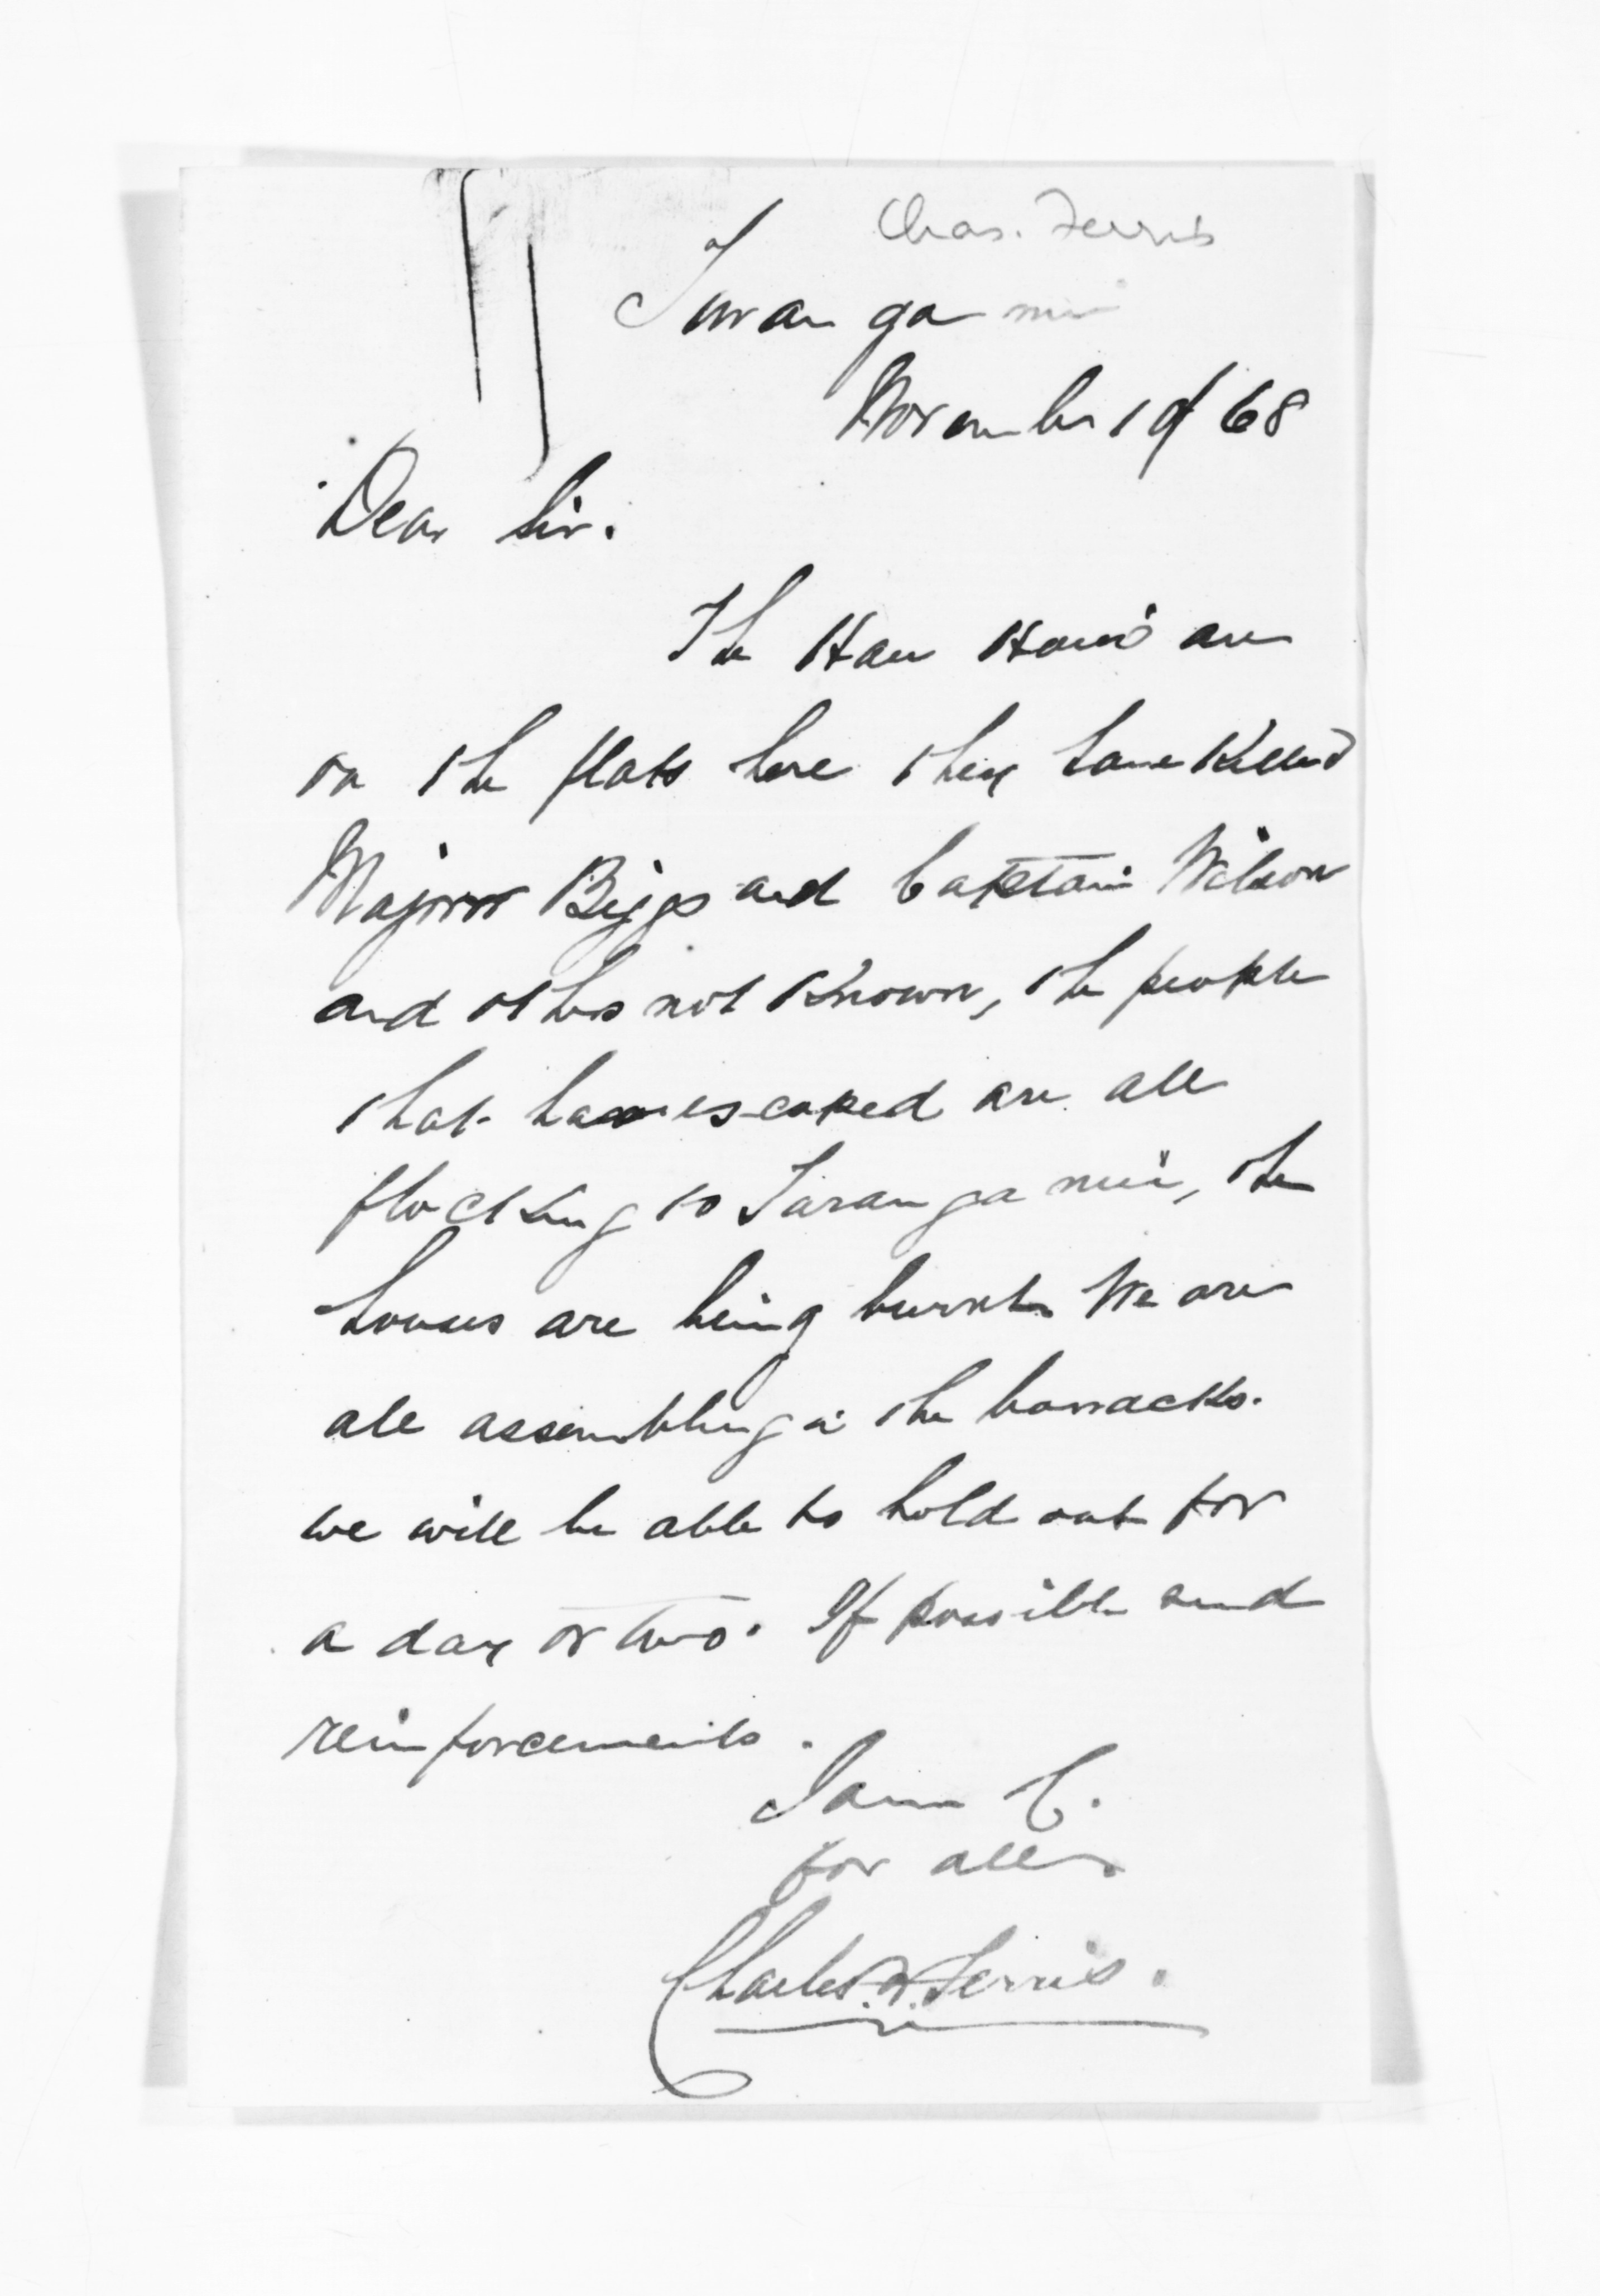 Chas. Ferris
Turanga nui
November 10/68
Dear Sir.
The Hau Hau's are
on the flats here they have killed
Majorr Biggs and Captain Wilson
and others not known, the people
that have escaped are all
flocking to Taranga nui, the
houses are being burnt. We are
all assembling in the barracks.
we will be able to hold out for
a day or two. If possible send
reinforcements.
I am &.
for all.
Charles. W. Ferris.